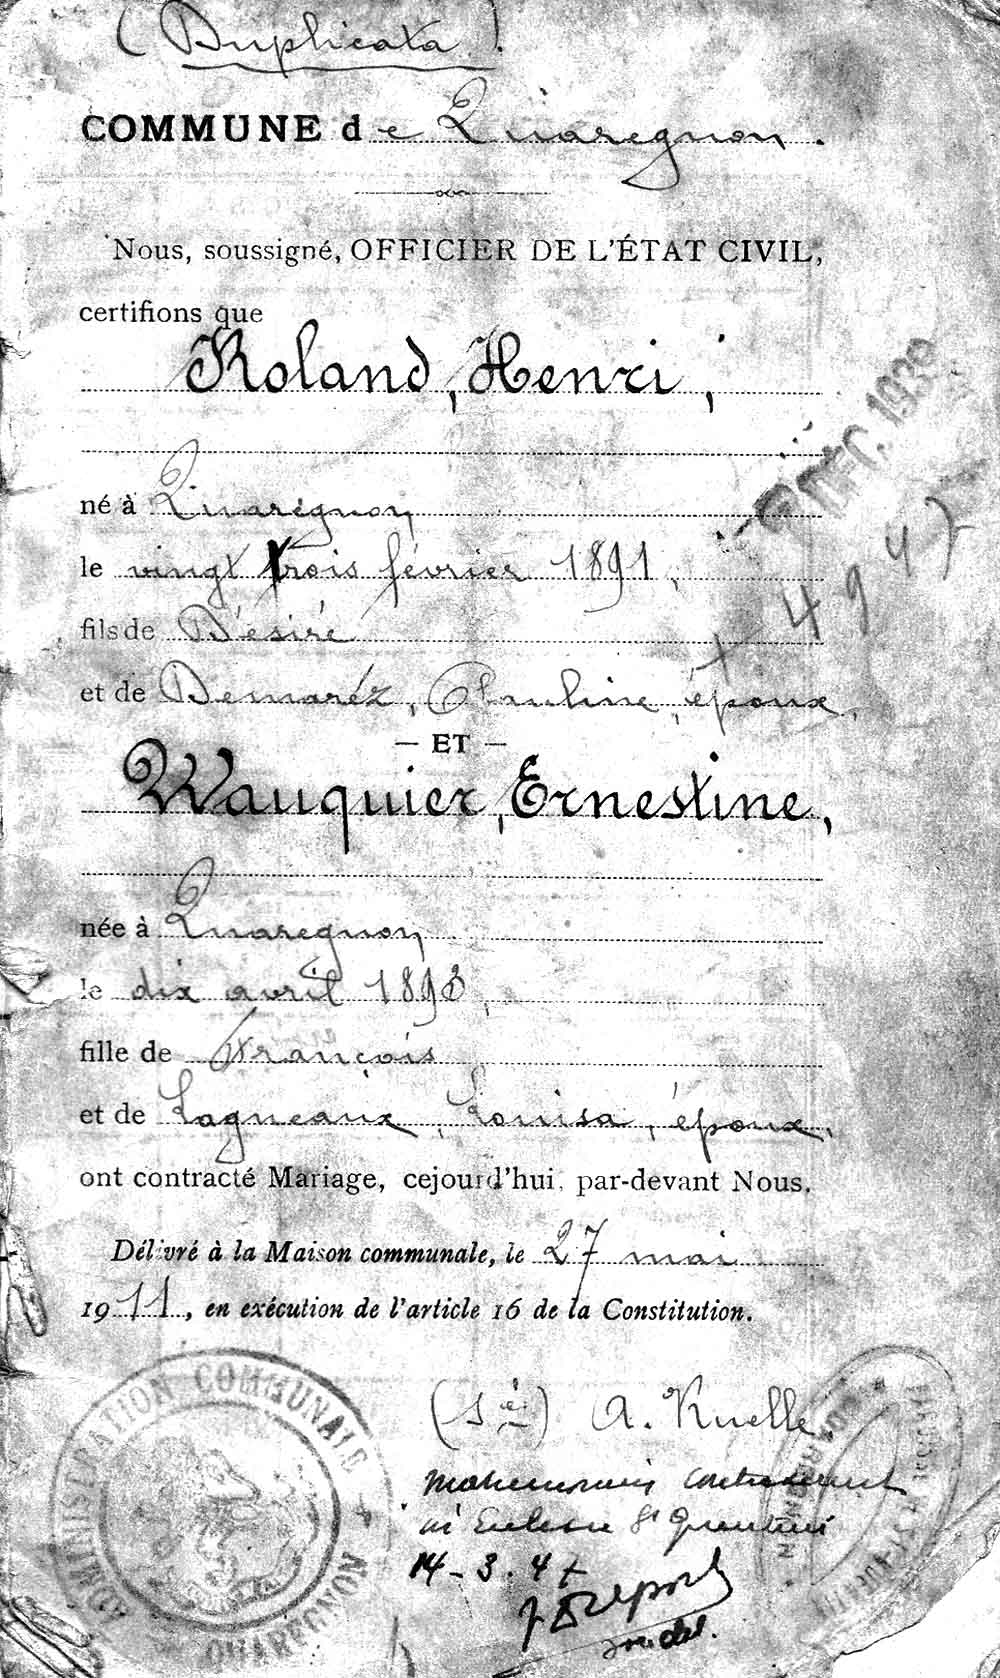 (Duplicata).
COMMUNE de Quaregnon.
Nous, soussigné, OFFICIER DE L'ÉTAT CIVIL,
certifions que
Roland, Henri,
DÉC. 1939
né à Quaregnon
le vingt trois février 1891,
4947
fils de Désiré
et de Demaréz, Pauline, époux,
— ET —
Wauquier, Ernestine,
née à Quaregnon
le dix avril 1893,
fille de François
et de Lagneaux, Louisa, époux,
ont contracté Mariage, cejourd'hui, par-devant Nous.
Délivré à la Maison communale, le 27 mai
1911, en exécution de l'article 16 de la Constitution.
(sé) A. Ruelle
ADMINISTRATION COMMUNALE
QUAREGNON
Matrimonium contraxerunt
in Ecclesia St Quentini
14-3.47